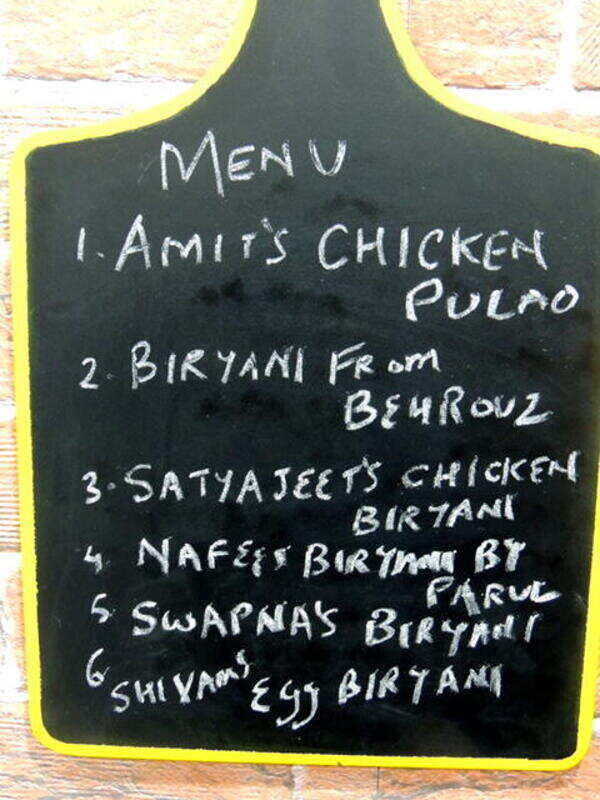 MENU
1. AMIT'S CHICKEN
PULAO
2. BIRYANI FROM
BEHROUZ
3. SATYAJEET'S CHICKEN
BIRYANI
4 NAFEES BIRYANI BY
PARUL
5 SWAPNA'S BIRYANI
6 SHIVAM'S EGG BIRYANI